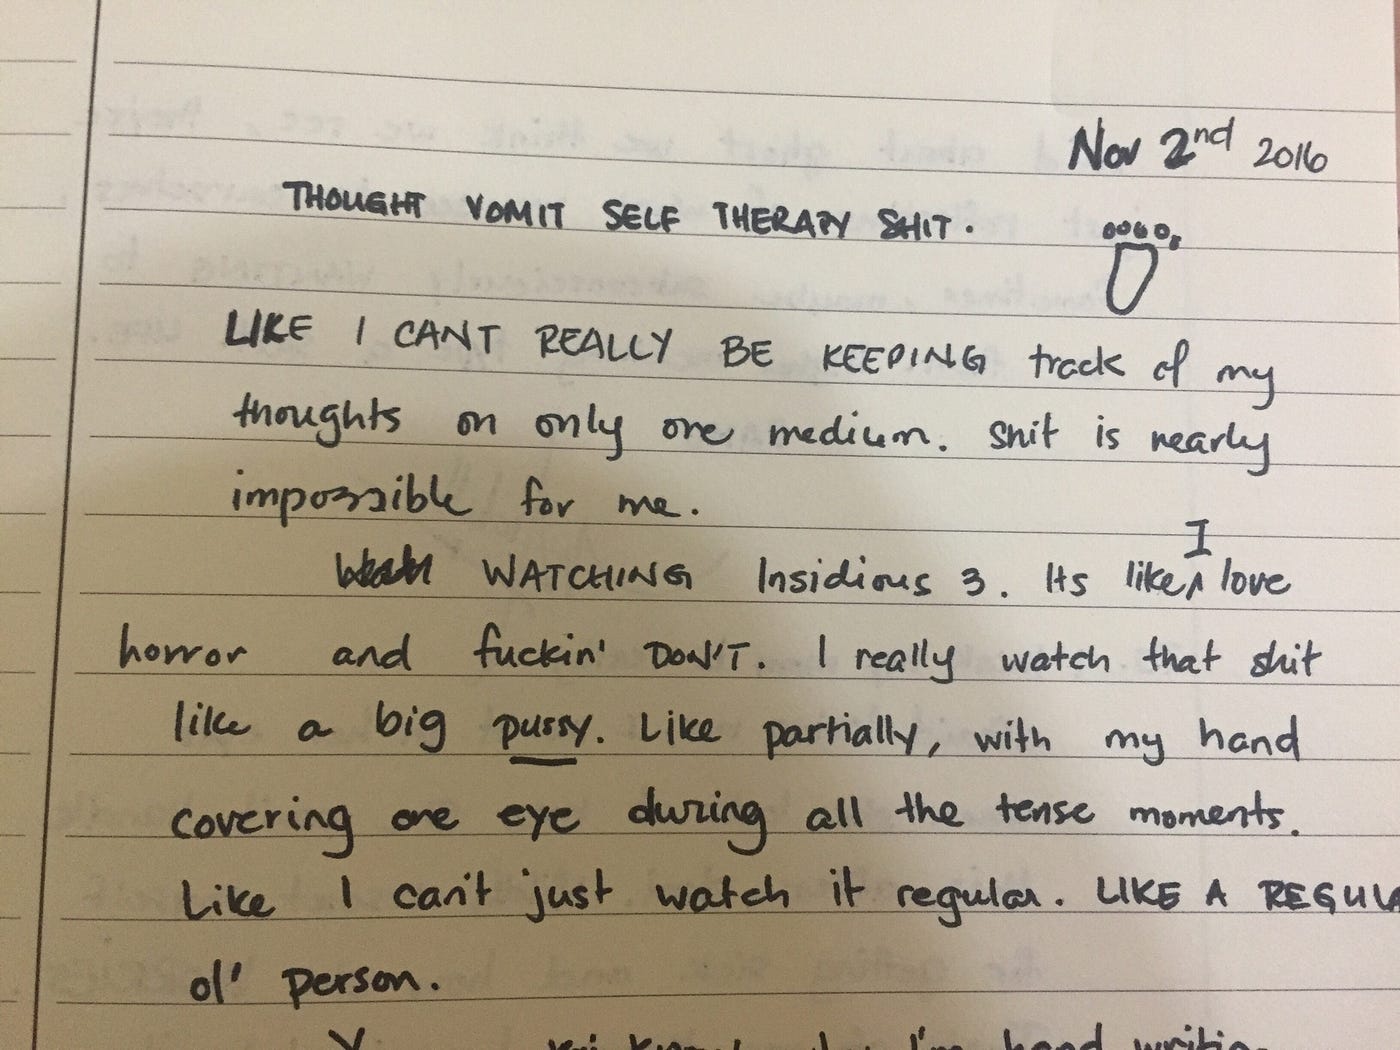 Nov 2nd 2016
THOUGHT VOMIT SELF THERAPY SHIT.
LIKE I CANT REALLY BE KEEPING track of my
thoughts on only one medium. Shit is nearly
impossible for me.
WATCHING Insidious 3. Its like I love
horror and fuckin' DON'T. I really watch that shit
like a big pussy. Like partially, with my hand
covering one eye during all the tense moments.
Like I can't just watch it regular. LIKE A REGULA
ol' person.
I'm hand writin